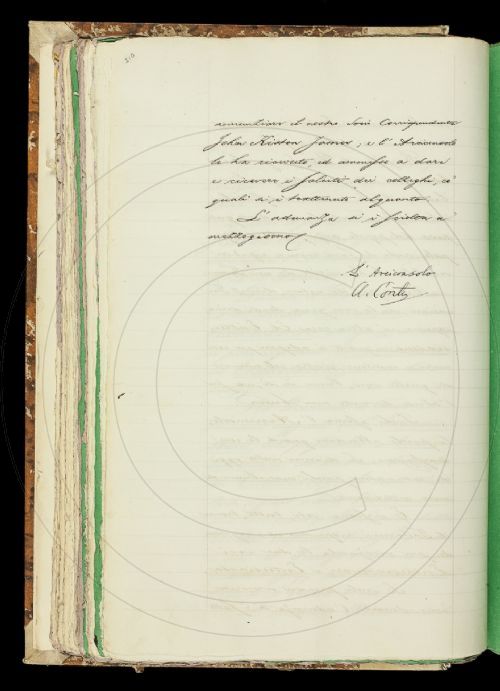 210
il nostro Socio Corrispondente
John Kirton James, e l'Arciconsolo
lo ha ricevuto, ed ammesso a dare
e ricevere i saluti dei colleghi, co'
quali si è trattenuto alquanto.
L'adunanza si è sciolta a
mezzogiorno.
L'Arciconsolo
A. Conti